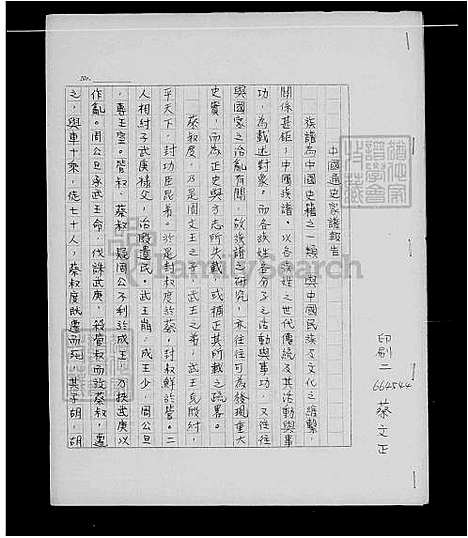 No.
中國通史家譜報告
族譜為中國史籍之一類，與中國民族及文化之維繫，
關係甚鉅；中國族譜。以各族姓之世代傳統及其活動與事
功，為載述對象。而各族姓各分子之活動與事功，又往往
與國家之治亂有關，故族譜之研究，亦往往可為發現重大
史實，而為正史與方志所失載，或補正其所載之疏畧。
蔡叔度，乃是周文王之子，武王之弟，武王克殷紂，
平天下，封功臣昆弟。於是封叔度於蔡，封叔鮮於管。二
人相紂子武庚祿父，治殷遺民。武王崩，成王少，周公旦
，專王室。管叔、蔡叔，疑周公不利於成王，乃挾武庚以
作亂。周公旦承武王命，伐誅武庚，殺管叔而放蔡叔，遷
之，與車十乘，徒七十人，蔡叔度既遷而死，其子胡，胡
印刷二 664544 蔡文正
譜學會
FamilySearch